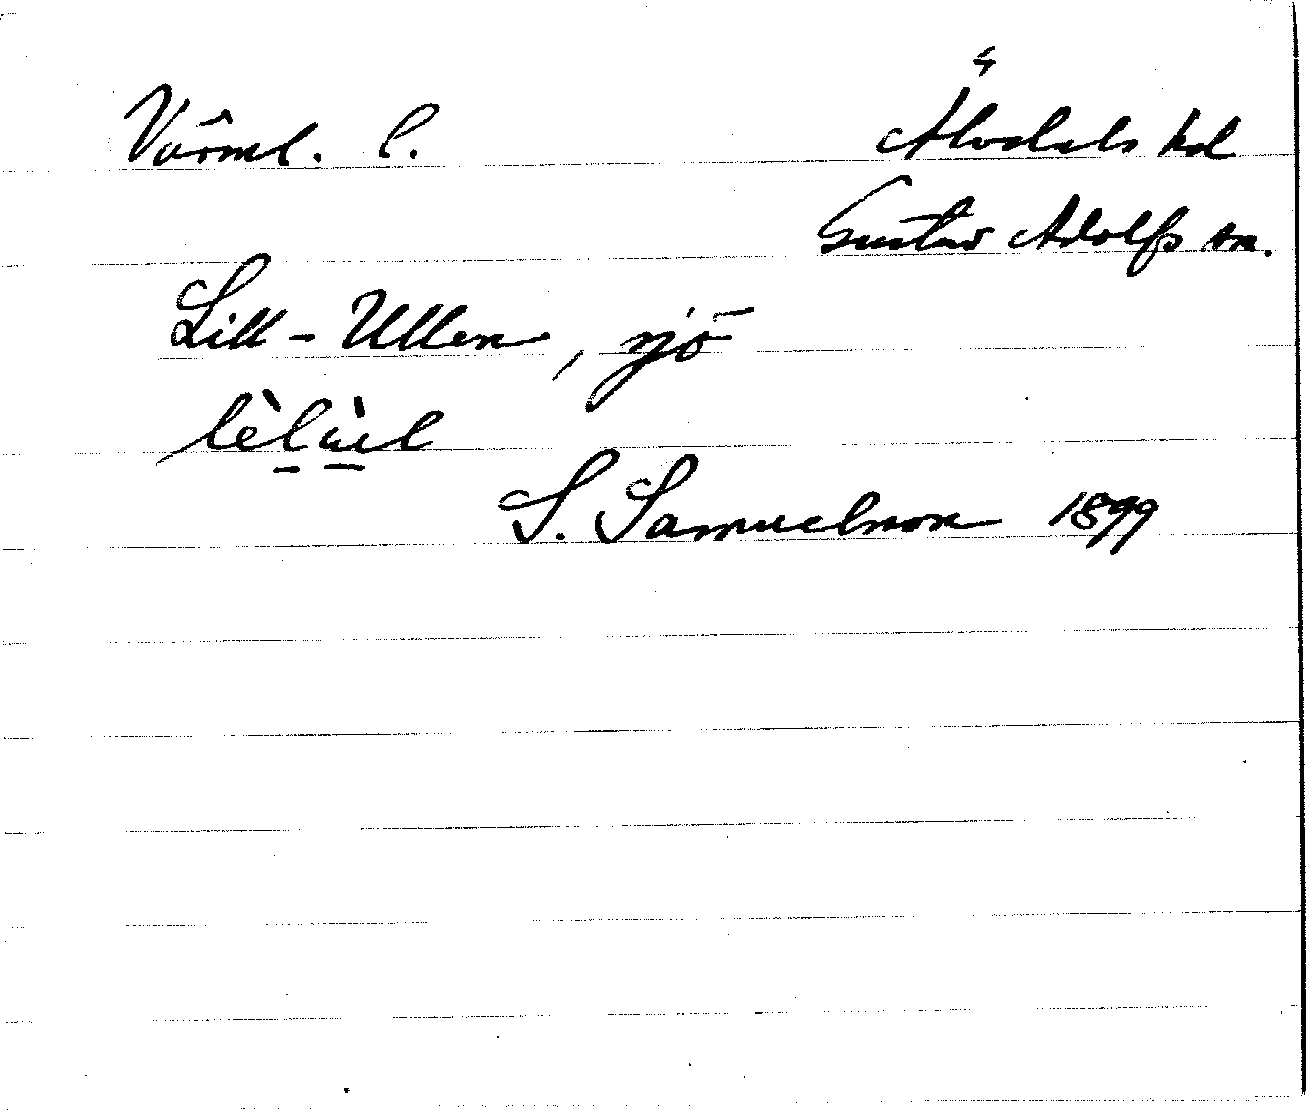 Värml. l. Älvdals hd
Gustav Adolfs sn.
Lill-Ullen, sjö
lèlùl
S. Samuelsson 1899